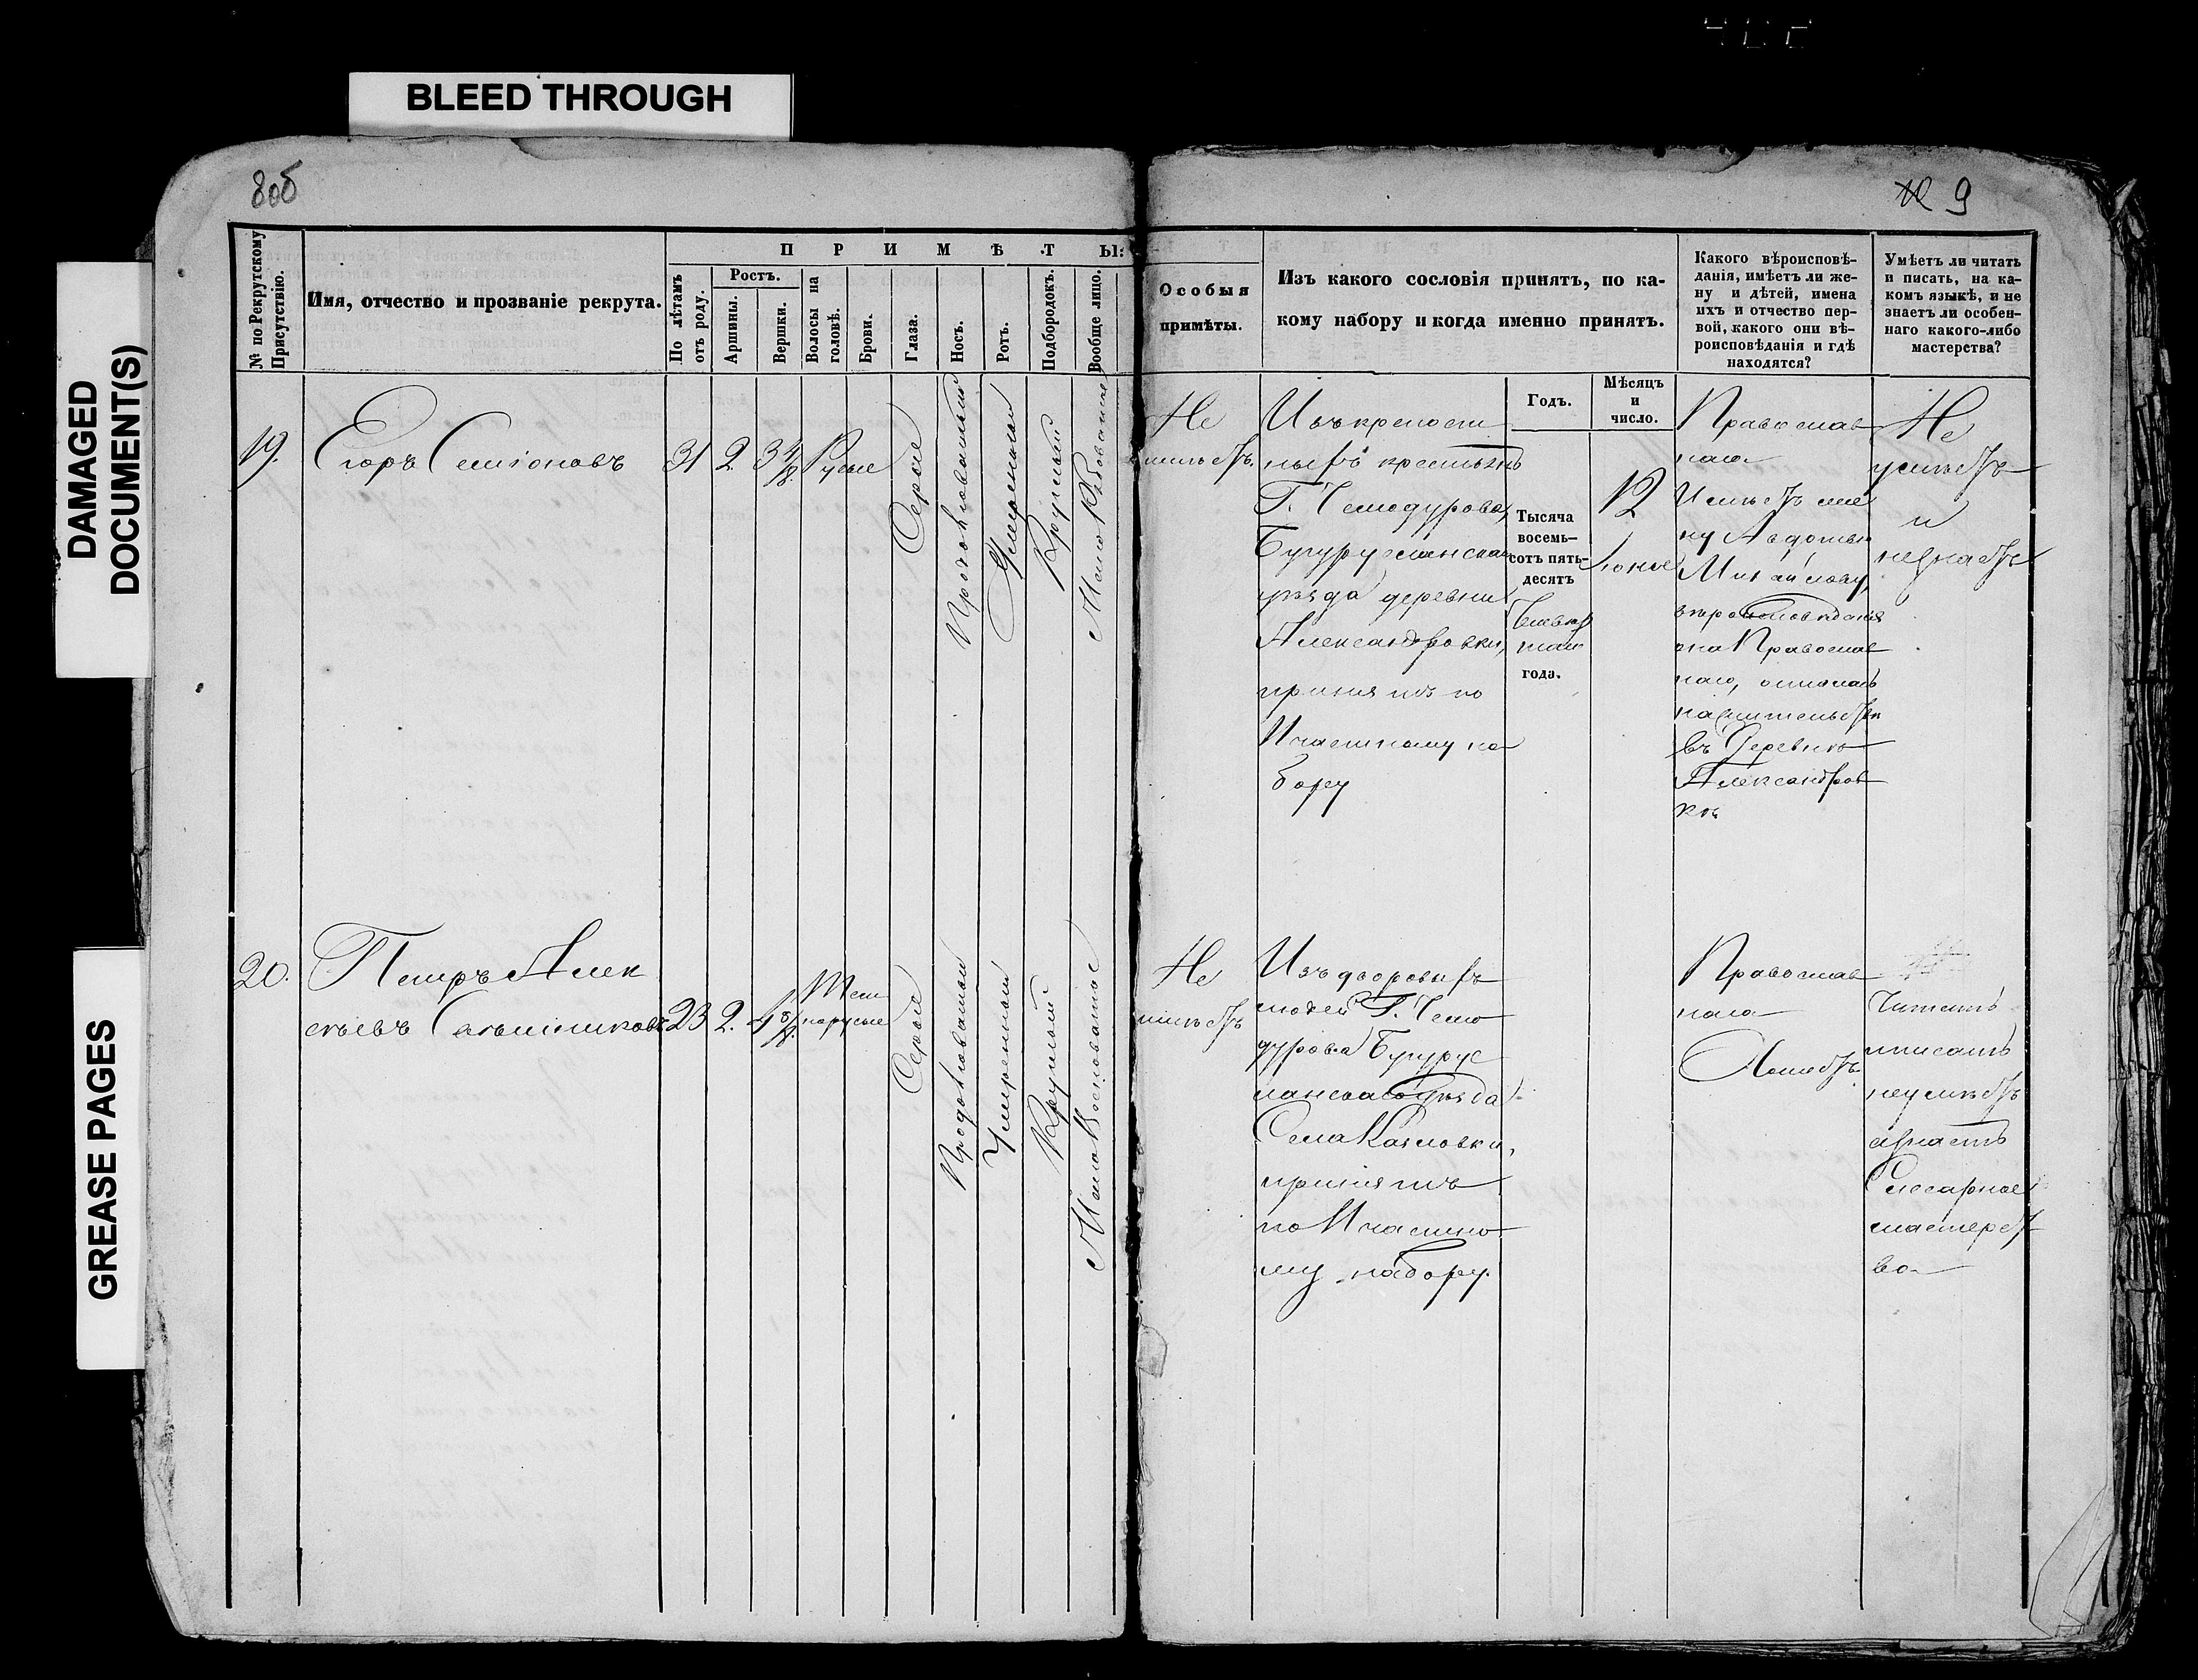 BLEED THROUGH
DAMAGED
DOCUMENT(S)
GREASE PAGES
8об
9
№ по Рекрутскому
Присутствію.
Имя, отчество и прозваніе рекрута.
ПРИМѢТЫ:
По лѣтамъ
отъ роду.
Ростъ.
Аршины.
Вершки.
Волосы на
головѣ.
Брови.
Глаза.
Носъ.
Ротъ.
Подбородокъ.
Вообще лицо.
Особыя
примѣты.
Изъ какого сословія принятъ, по ка-
кому набору и когда именно принятъ.
Годъ.
Мѣсяцъ
и
число.
Какого вѣроисповѣ-
данія, имѣетъ ли же-
ну и дѣтей, имена
ихъ и отчество пер-
вой, какого они вѣ-
роисповѣданія и гдѣ
находятся?
Умѣетъ ли читать
и писать, на ка-
комъ языкѣ, и не
знаетъ ли особен-
наго какого-либо
мастерства?
19.
Егоръ Семіоновъ
31
2
3 4/8
Русые
Серые
Умеренный
Круглый
Не
имѣетъ.
Изъ крепост
ныхъ крестьянъ
Г. Чемодурова,
Бугурусланскаго
уѣзда деревни
Александровки,
принятъ по
И частному на
бору
Тысяча
восемь-
сотъ пять-
десятъ
года.
12
Православ
наго
Имѣетъ же
ну Авдотью
Михайлову,
вѣроисповѣданія
она Православ
наго,
на жительствѣ
въ Деревнѣ
Александров
кѣ
Не
умѣетъ
и
незнаетъ
20.
Петръ Алек
сѣевъ
23
2.
4 5/8
Тем
норусые
Серые
Продолговатый
Умеренный
Круглый
Не
имѣетъ
Изъ дворовыхъ
людей Г. Чемо
дурова Бугурус
ланскаго уѣзда
Села
принятъ
по И частно
му набору.
Православ
наго
Холостъ.
Читать
иписать
неумѣетъ
азнаетъ
Слесарное
мастерст
во